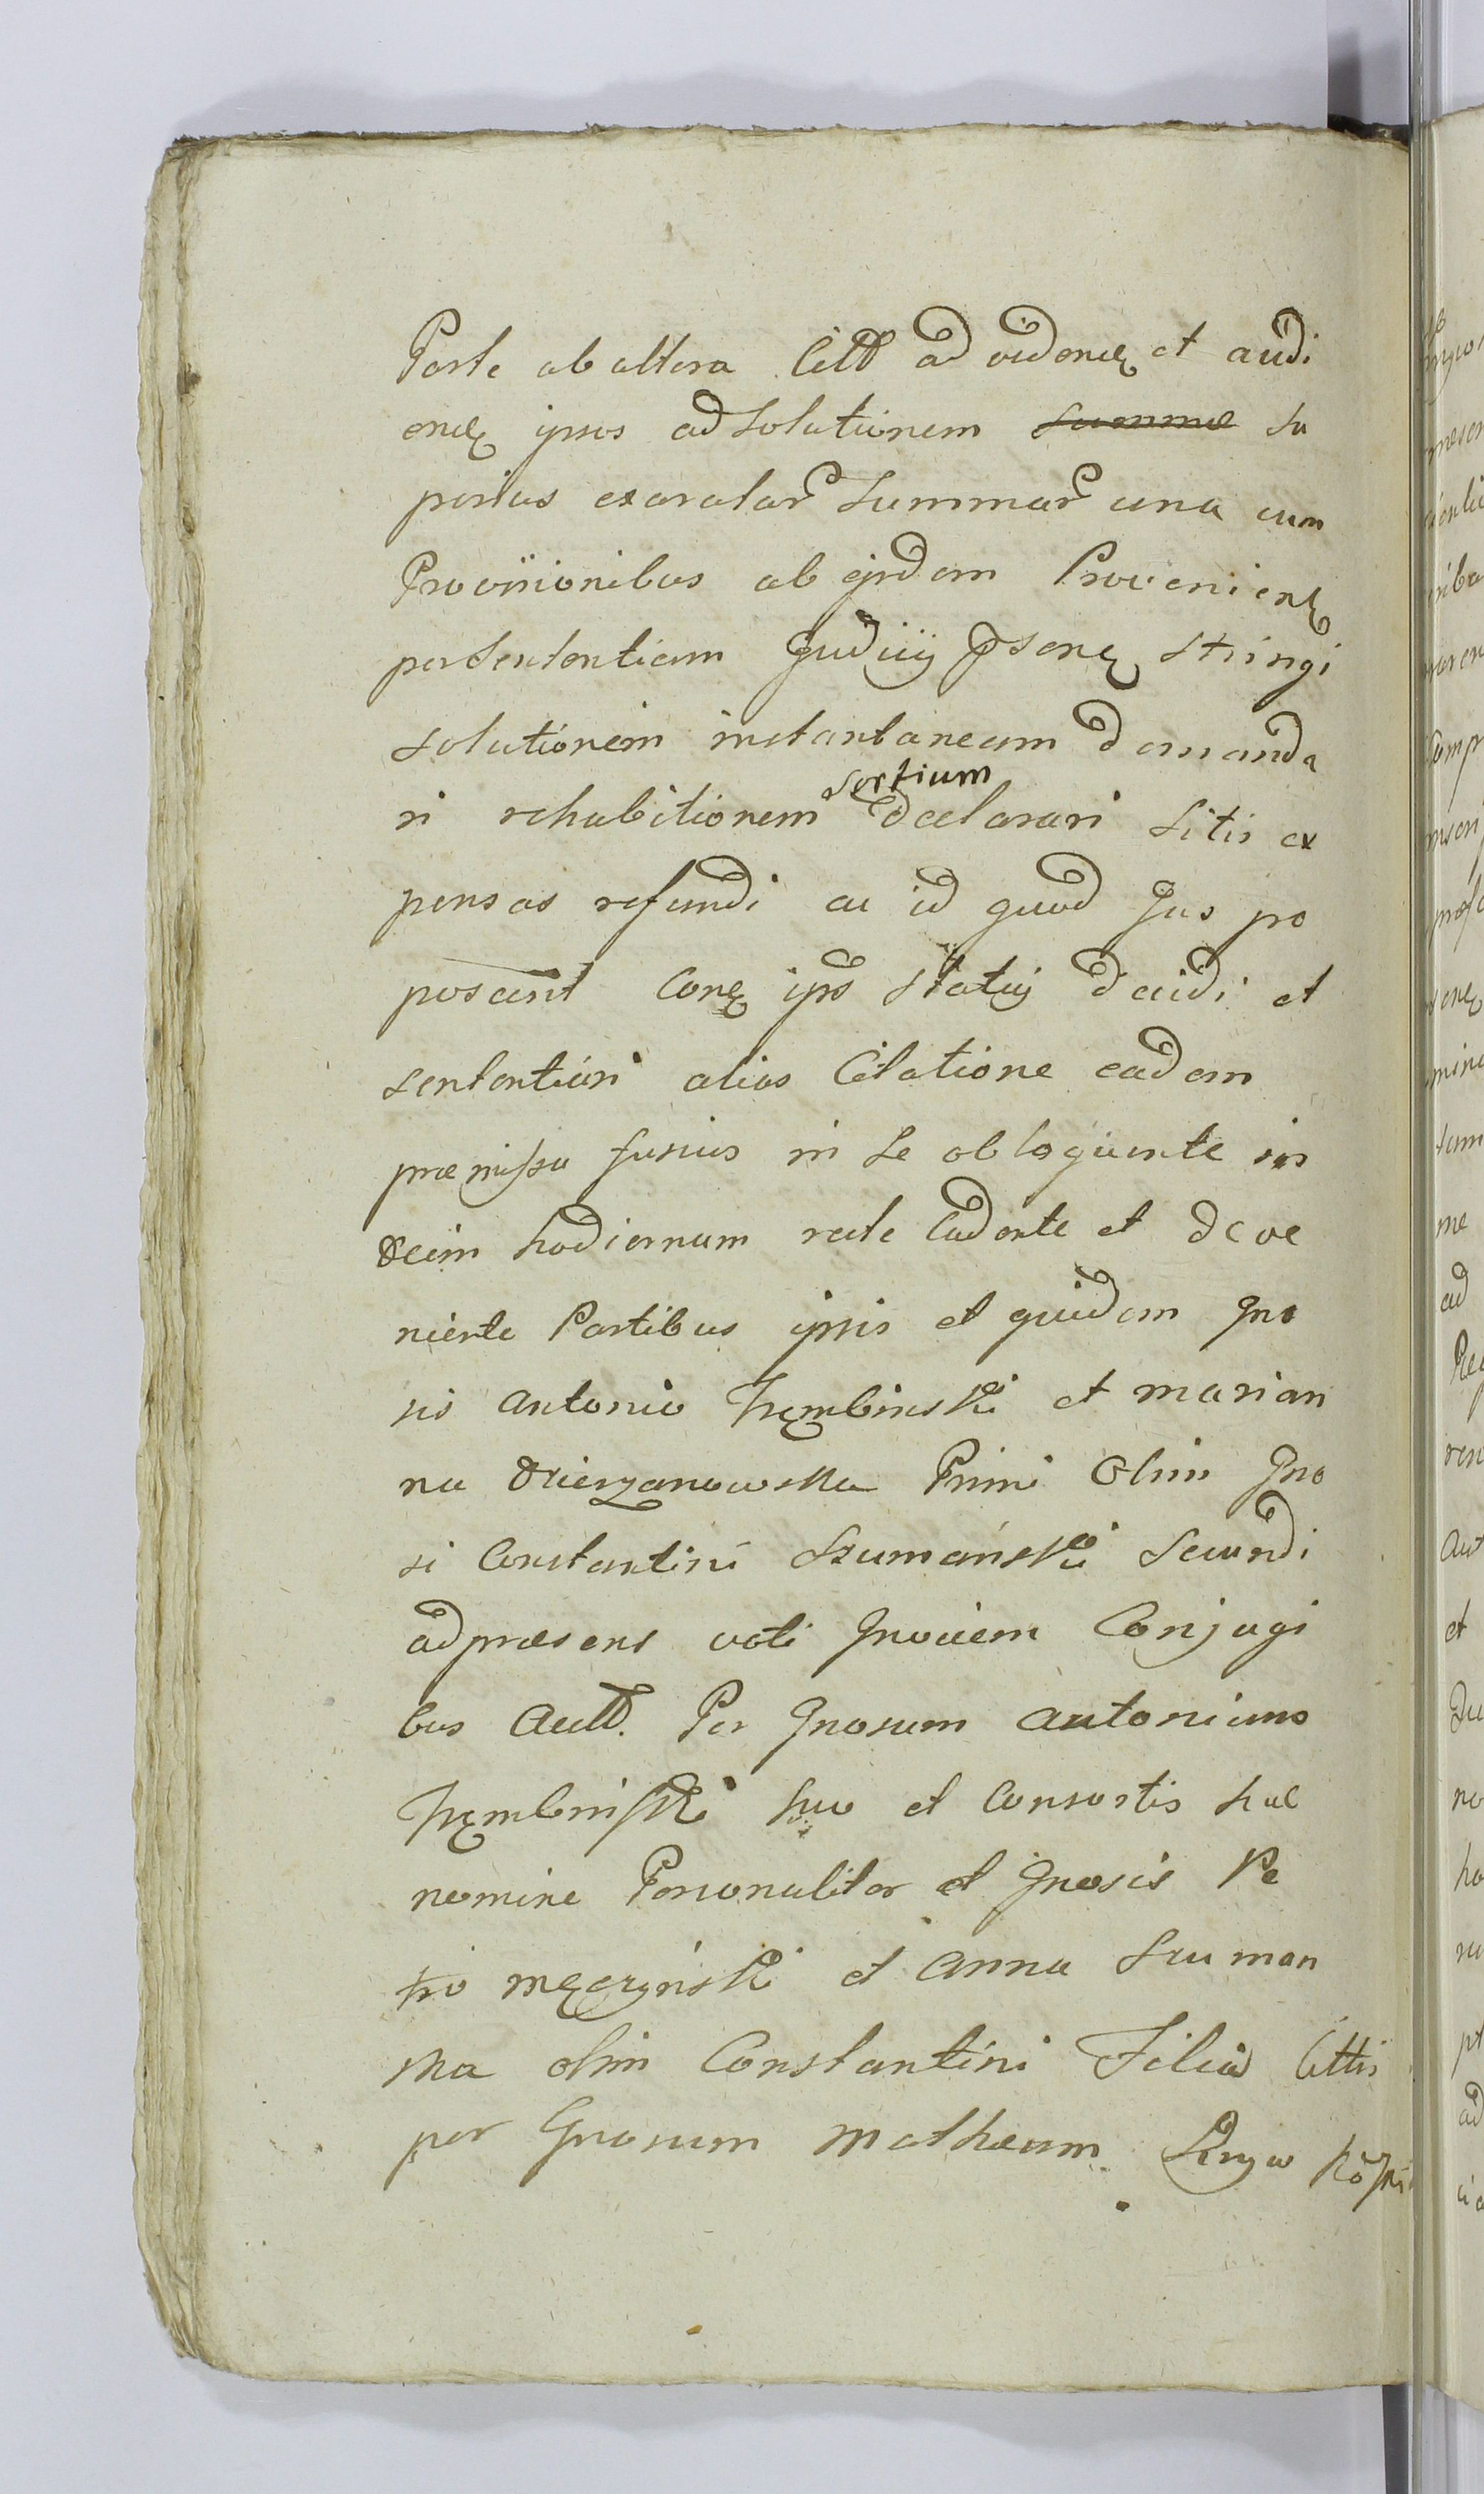 Parte ab altera Citt ad videnɇ et audi
enɇ ipsos ad solutionem summæ su
perius exaratar summar una cum
Provisionibus ab ejsdem Provenientɇ
per Sententiam Judicij Psenɇ Stringi
solutionem instantaneam demanda
ri rehabitionem sortium declarari Litis ex
pensas refundi ac id quod Jus po
poscent Corɇ ips statuj decidi et
sententiari alias Citatione eadem
præmissa fusius in se obloquente in
diem hodiernum recte Cadente et deve
niente Partibus ipsis et quidem Gno
sis Antonio Trembinski et Marian
na Dzierzanowska Primi Olim Gno
si Constantini Szumański Secundi
ad præsens voti Gnociem Conjugi
bus Actt. Per Gnosum Antonium
Trembinski suo et Consortis suæ
nomine Personaliter et Gnosis Pe
tro Męczyński et Anna Szuman
ska olim Constantini Filia Cittis
per Gnosum Matheum Krzywkoski